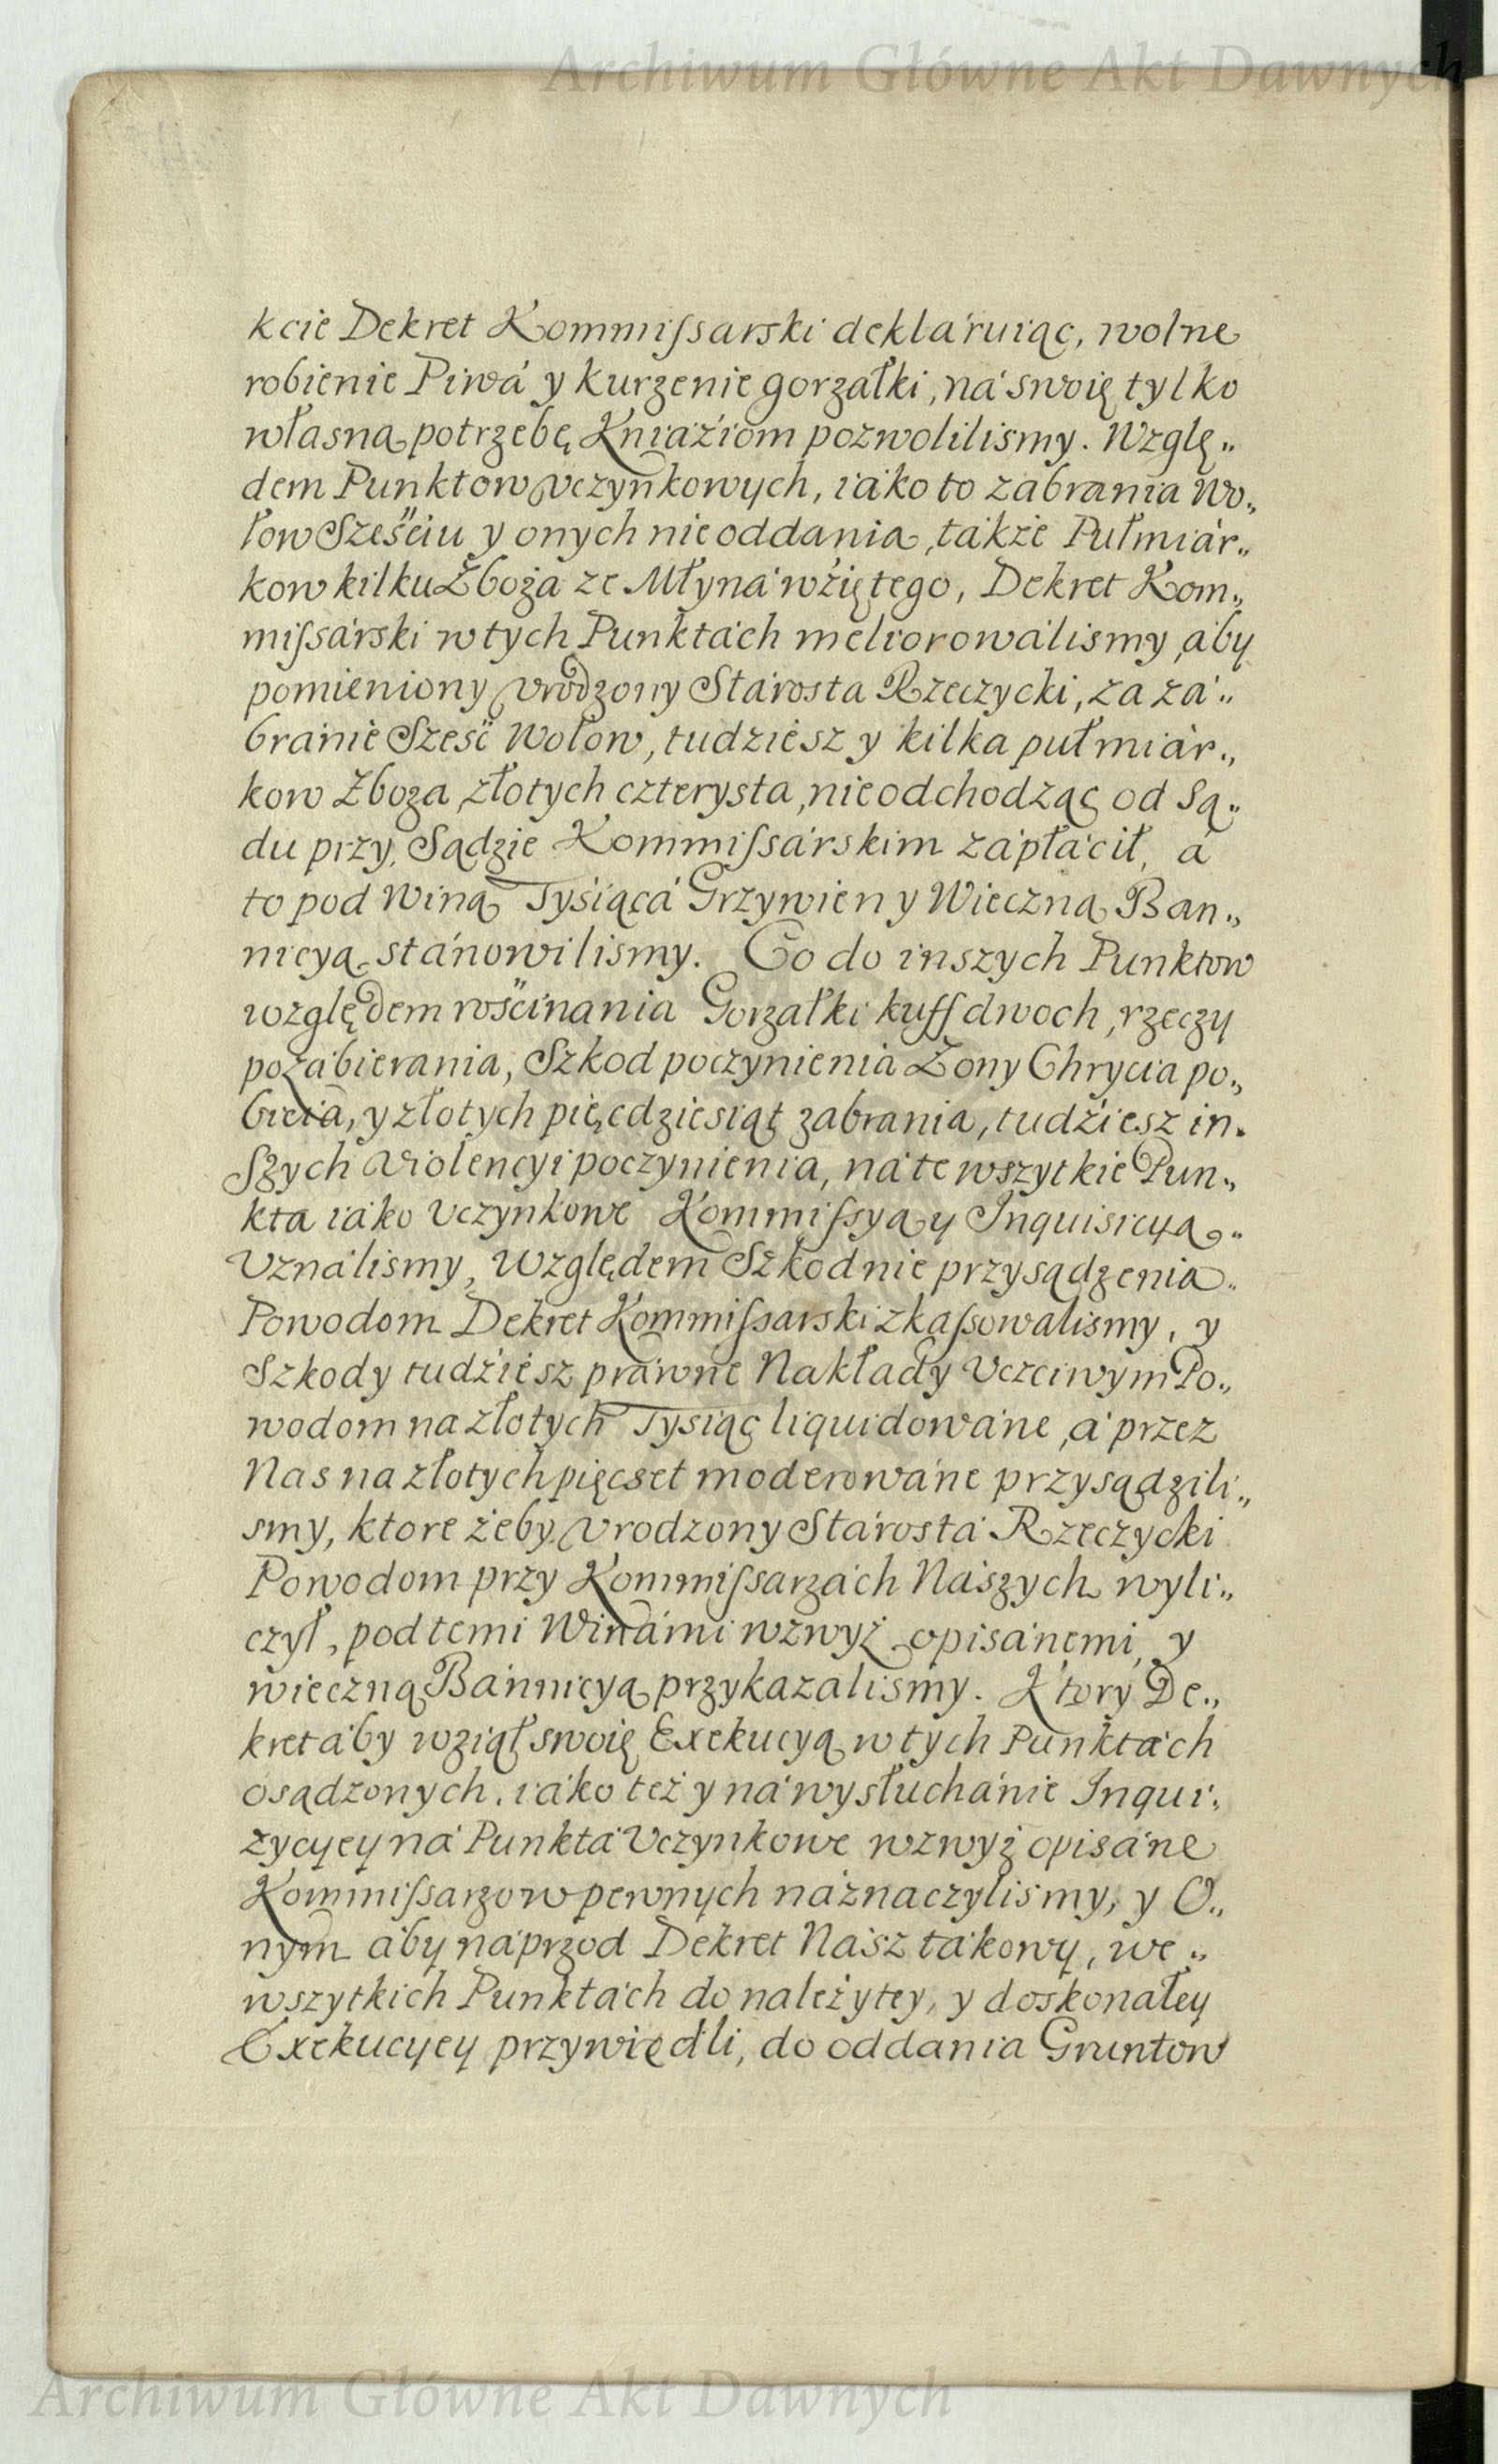 Archiwum Główne Akt Dawnych
kcie Dekret Kommiſsarski dekláruiąc, wolne
robienie Piwá y kurzenie gorzałki, ná swoię tylko
własną potrzebę Kniáźiom pozwolilismy. Wzglę„
dem Punktow Vczynkowych, iáko to zábrania Wo„
łow Sześciu y onych nie oddania, tákże Pułmiár„
kow kilku Zboża ze Młyná wźiętego, Dekret Kom„
miſsárski w tych Punktách meliorowálismy, áby
pomieniony Vrodzony Stárosta Rzeczycki, zá zá„
bránie Sześć Wołow, tudziesz y kilka pułmiár„
kow Zboża, złotych czterysta, nie odchodząc od Są„
du przy Sądzie Kommiſsárskim zápłácił, á
to pod Winą Tyśiącá Grzywien y Wieczną Ban„
nicyą stánowilismy. Co do inszych Punktow
względem rościnania Gorzałki kuff dwoch, rzeczy
pozábierania, Szkod poczynienia Żony Chrycia po„
bicia, y złotych pięcdziesiąt zabrania, tudźiesz in„
Szych Violencyi poczynienia, ná te wszytkie Pun„
kta iáko Vczynkowe Kommiſsyą y Inquisicyą„
Vználismy, Względem Szkod nie przysądzenia„
Powodom Dekret Kommiſsarski zkaſsowalismy, y
Szkody tudźiesz práwne Nakłády Vczciwym Po„
wodom na złotych Tysiąc liquidowáne, á przez
Nas na złotych pięcset moderowáne przysądzili„
smy, ktore żeby Vrodzony Stárostá Rzeczycki
Powodom przy Kommiſsarzách Nászych wyli„
czył, pod temi Winámi wzwyż opisánemi, y
wieczną Bánnicyą przykazalismy. Ktory De„
kret áby wziął swoię Exekucyą w tych Punktách
osądzonych, iáko też y ná wysłuchánie Inqui„
zycyey ná Punktá Vczynkowe wzwyż opisáne
Kommiſsarzow pewnych náznaczylismy, y O„
nym áby náprzod Dekret Nász tákowy, we„
wszytkich Punktách do należytey, y doskonałey
Exekucyey przywiedli, do oddania Gruntow
Archiwum Główne Akt Dawnych